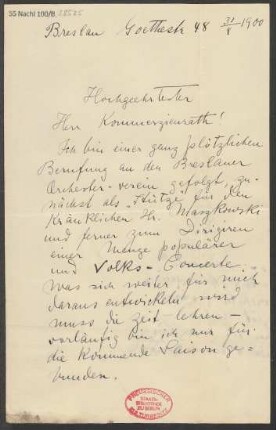 55 Nachl 100/B
Breslau Goethestr 48 31/8 1900
Hochgeehrtester
Herr Kommerzienrath!
Ich bin einer ganz plötzlichen
Berufung an den Breslauer
Orchester-verein gefolgt, zu-
nächst als Stütze für den
Kränklichen Hr. Maszkowski
und ferner zum Dirigiren
einer Menge populärer
und Volks-Concerte.
Was sich weiter für mich
daraus entwickeln wird
muss die Zeit lehren –
vorläufig bin ich nur für
die Kommende Saison ge-
bunden.